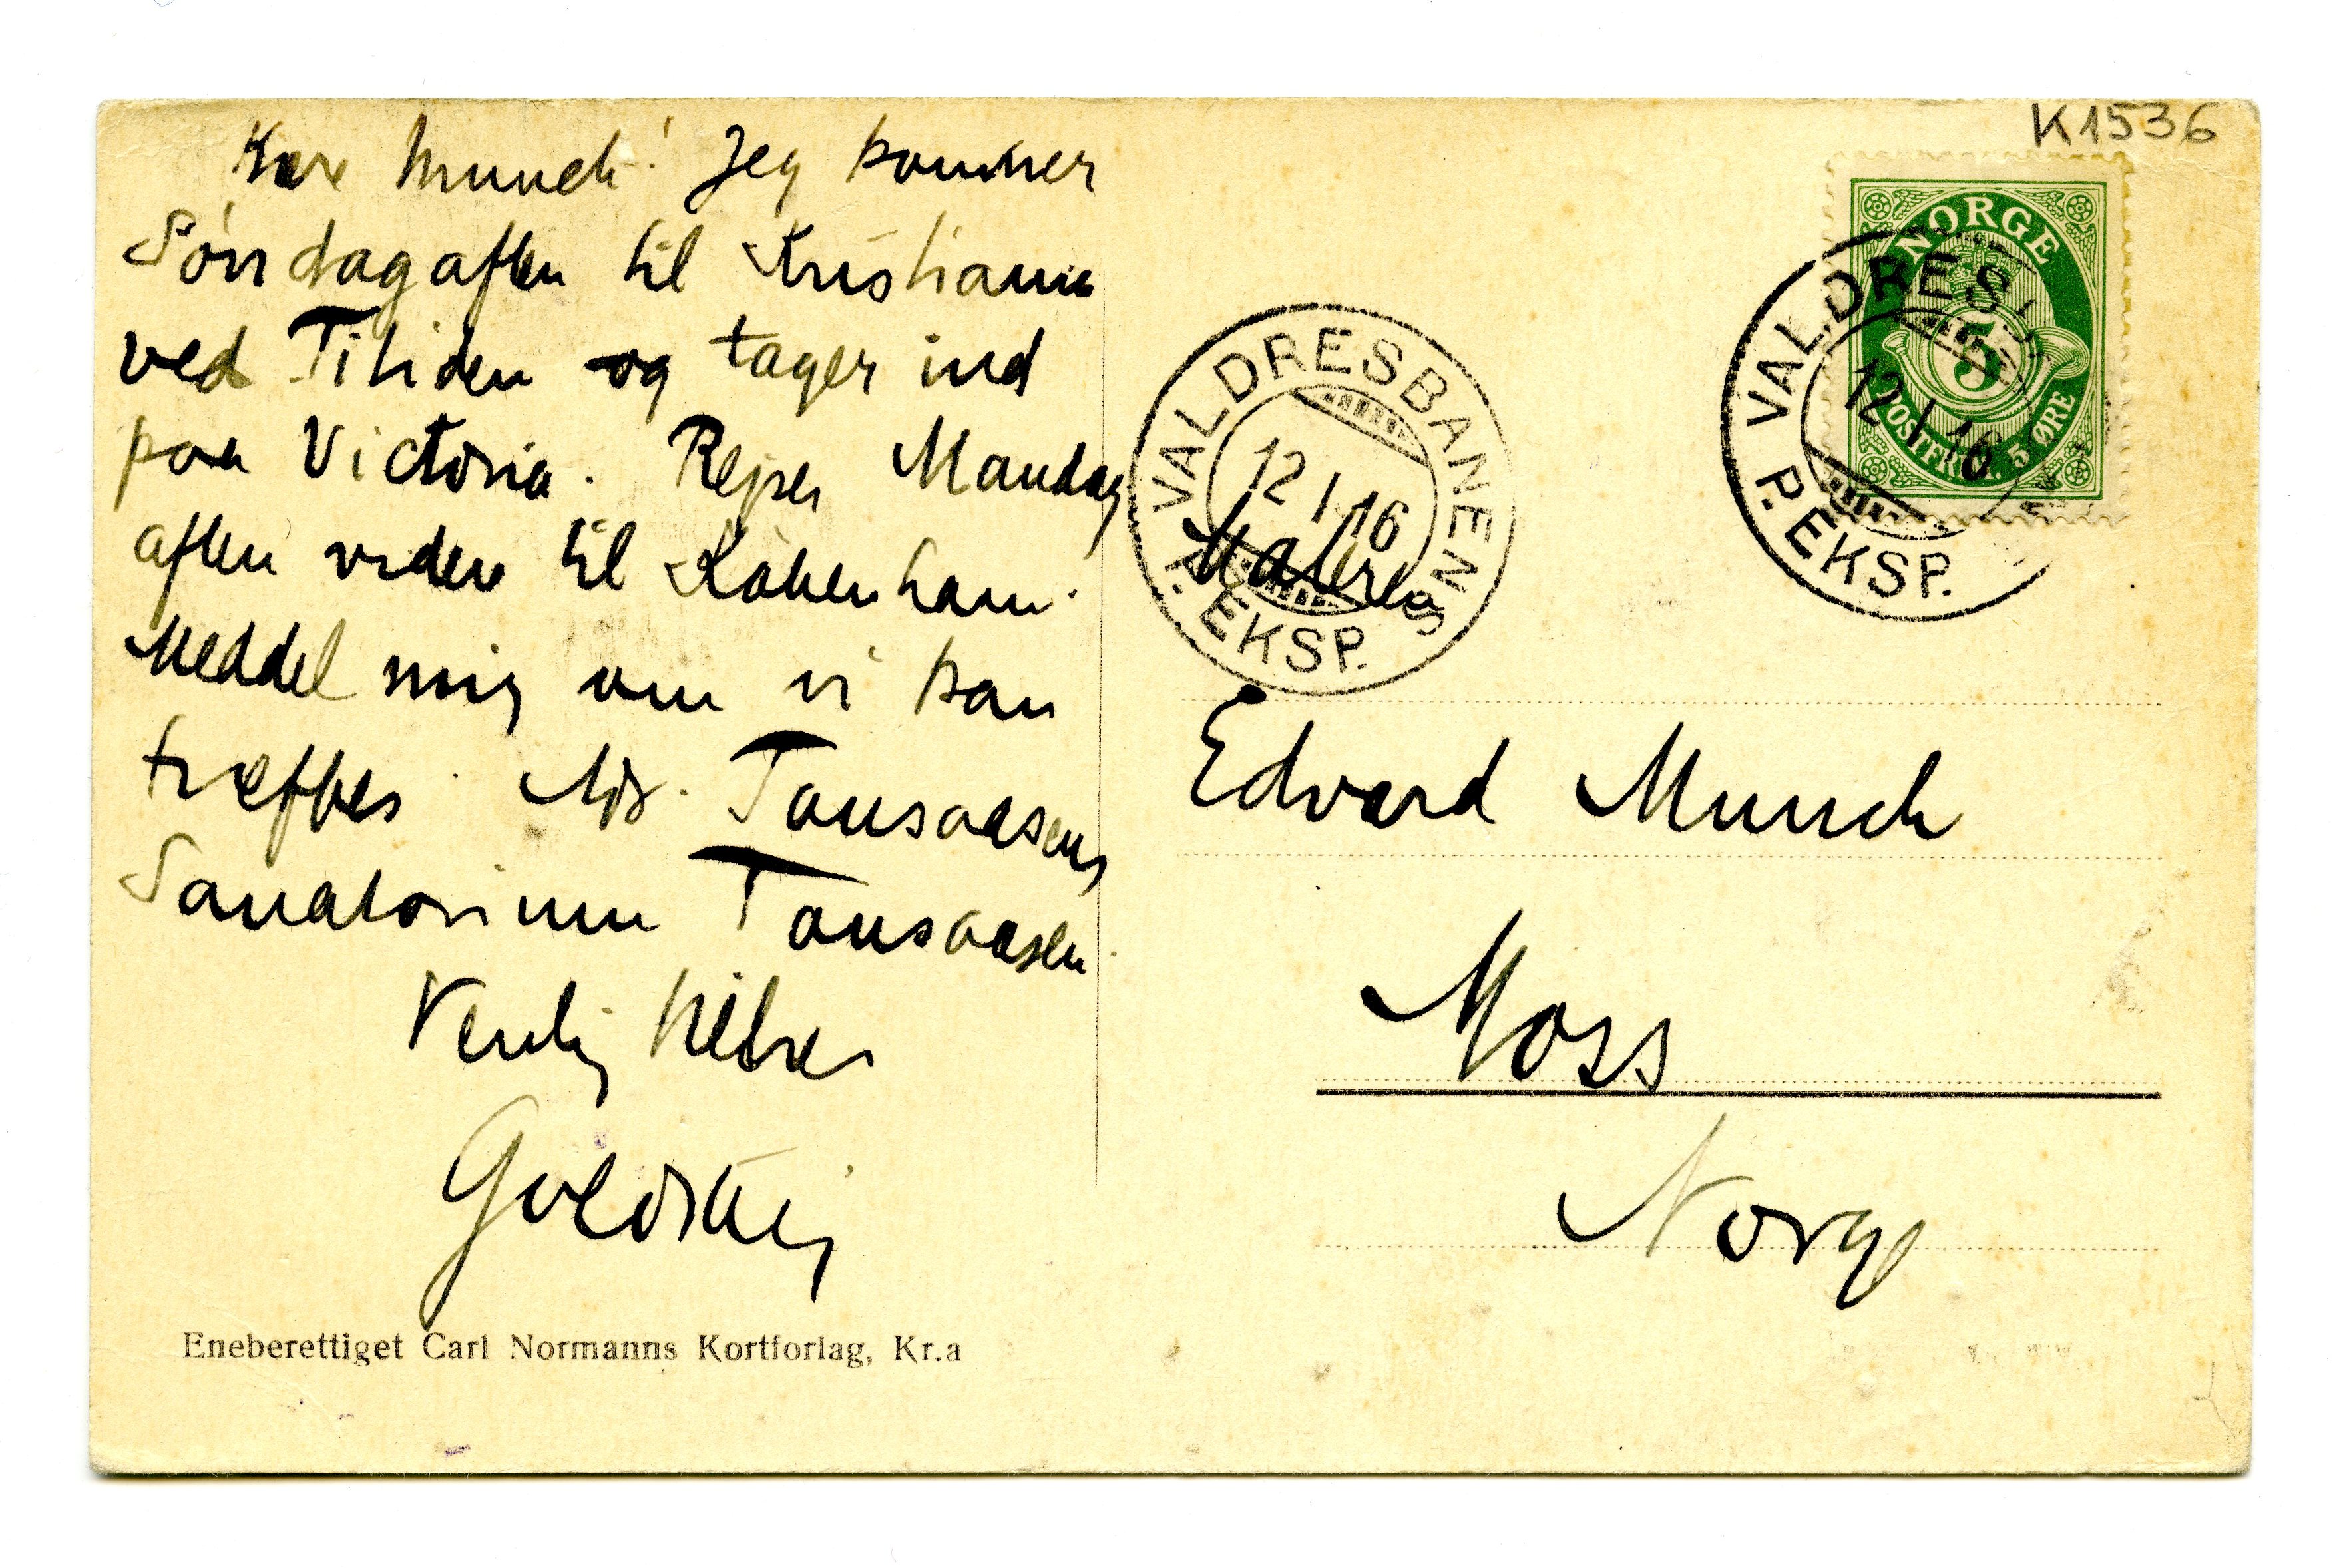 K1536
Kære Munch! Jeg kommer
Söndagaften til Kristiania
ved Titiden og tager ind
paa Victoria. Rejser Mandag
aften videre til Köbenhavn.
Meddel mig om vi kan
træffes. Adr. Tonsaasens
Sanatorium Tonsaasen.
Venlig Hilsen
Goldstein
Eneberettiget Carl Normanns Kortforlag, Kr.a
NORGE
5
POSTFRIM. 5 ØRE
VALDRESBANENS
12 I 16
P. EKSP.
VALDRESBANENS
12 I 16
P. EKSP.
Maleren
Edvard Munch
Moss
Norge